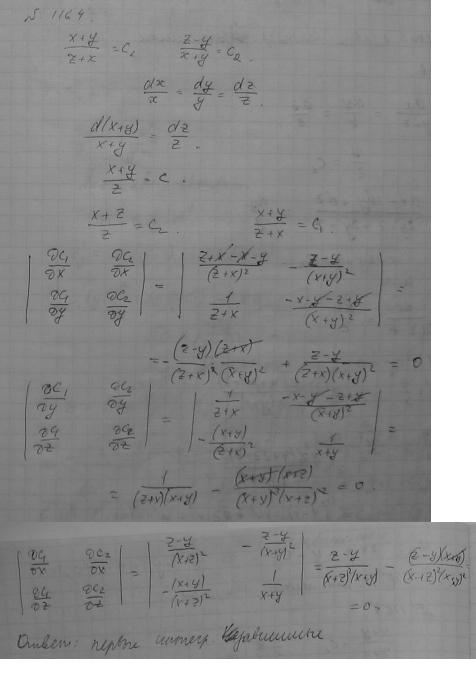 № 1164.
(x+y)/(z+x) = C₁   (z-y)/(x+y) = C₂.
dx/x = dy/y = dz/z.
d(x+y)/(x+y) = dz/z.
(x+y)/z = C.
(x+z)/z = C₂   (x+y)/(z+x) = C₁.
| ∂C₁/∂x   ∂C₂/∂x ; ∂C₁/∂y   ∂C₂/∂y | = | (z+x-x-y)/(z+x)²   -(z-y)/(x+y)² ; 1/(z+x)   (-x-y-z+y)/(x+y)² | =
= -(z-y)(z+x)/((z+x)²(x+y)²) + (z-y)/((z+x)(x+y)²) = 0
| ∂C₁/∂y   ∂C₂/∂y ; ∂C₁/∂z   ∂C₂/∂z | = | 1/(z+x)   (-x-y-z+y)/(x+y)² ; -(x+y)/(z+x)²   1/(x+y) | =
= 1/((z+x)(x+y)) - (x+y)(x+z)/((x+y)²(x+z)²) = 0.
| ∂C₁/∂x   ∂C₂/∂x ; ∂C₁/∂z   ∂C₂/∂z | = | (z-y)/(x+z)²   -(z-y)/(x+y)² ; -(x+y)/(x+z)²   1/(x+y) | = (z-y)/((x+z)²(x+y)) - (z-y)(x+y)/((x+z)²(x+y)²)
= 0.
Ответ: первые интегр. зависимые